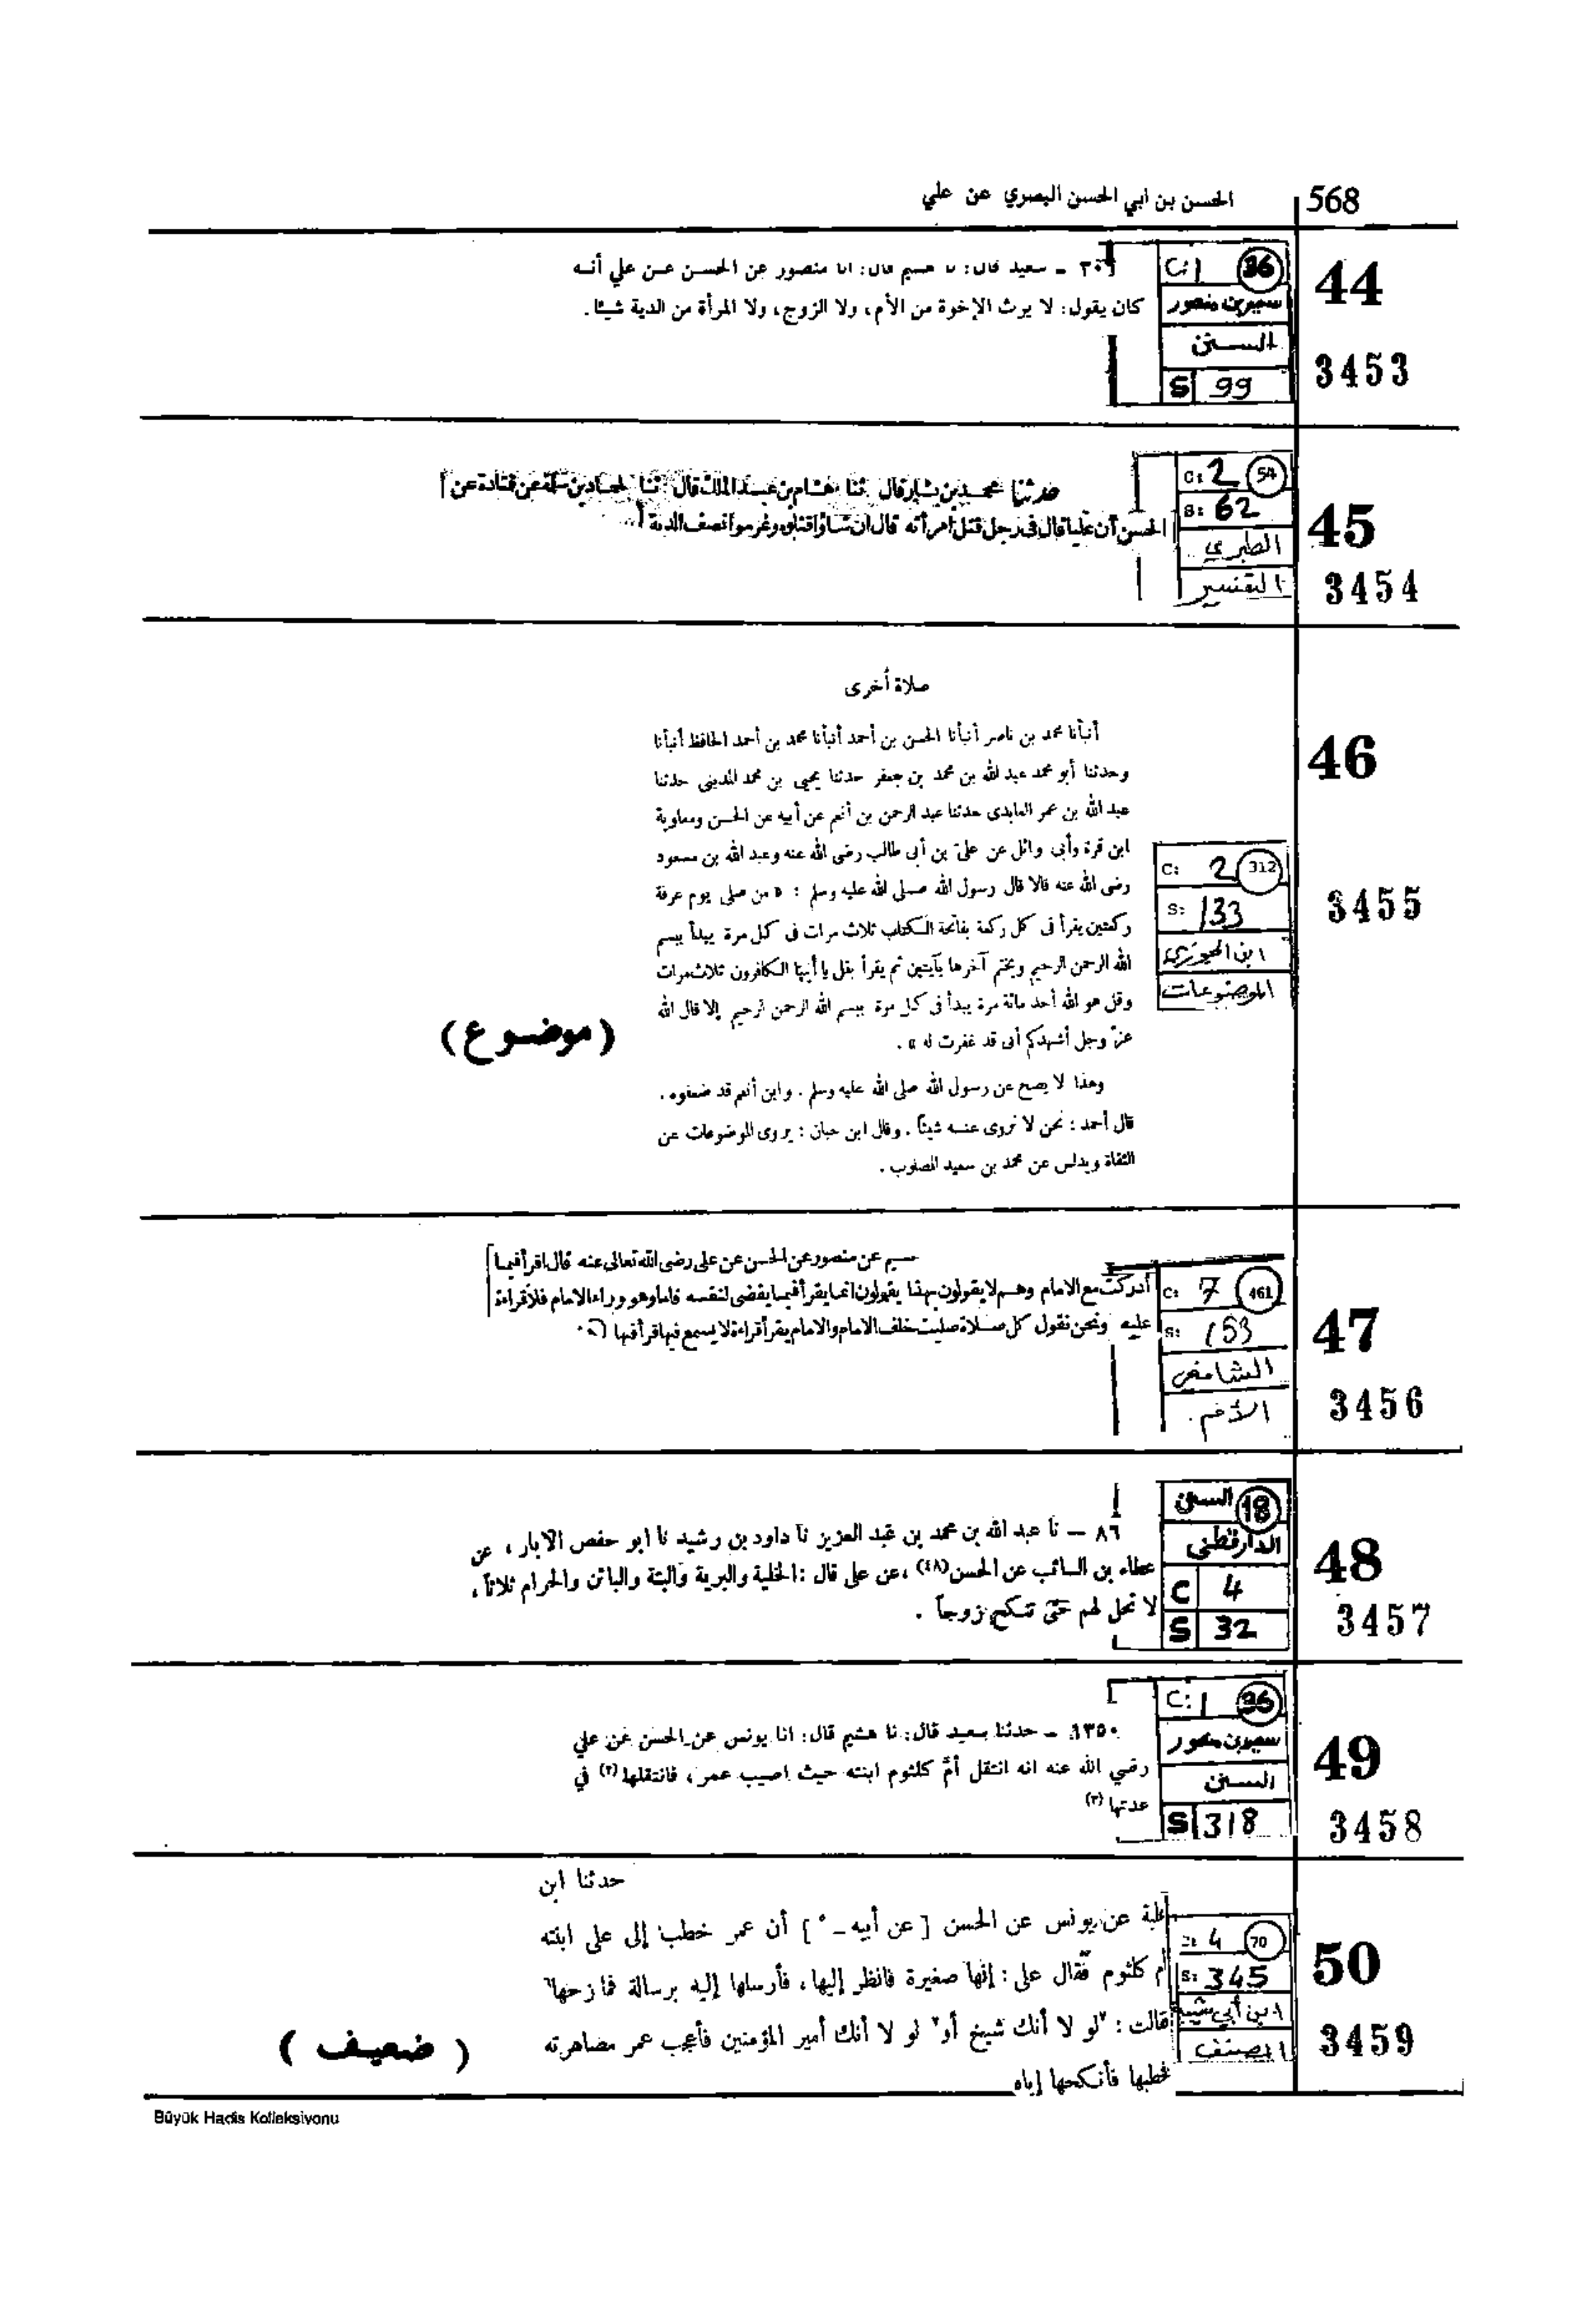 568
الحسن بن ابي الحسن البصري عن علي
44
3453
C: 1 36
سعيد بن منصور
السنن
S 99
٣٠٦ ـ سعيد قال: نا هشيم قال: انا منصور عن الحسن عن علي أنه
كان يقول: لا يرث الإخوة من الأم، ولا الزوج، ولا المرأة من الدية شيئا.
45
3454
C: 2 54
S: 62
الطبري
التفسير
حدثنا محمد بن بشار قال ثنا هشام بن عبد الملك قال ثنا حماد بن سلمة عن قتادة عن
الحسن أن عليا قال في رجل قتل امرأته قال ان شاؤا قتلوه وغرموا نصف الدية
46
3455
C: 2 312
S: 133
ابن الجوزي
الموضوعات
صلاة أخرى
أنبأنا محمد بن ناصر أنبأنا الحسن بن أحمد أنبأنا محمد بن أحمد الحافظ أنبأنا
وحدثنا أبو محمد عبد الله بن محمد بن جعفر حدثنا يحيى بن محمد المدينى حدثنا
عبد الله بن عمر العابدى حدثنا عبد الرحمن بن أنعم عن أبيه عن الحسن ومعاوية
ابن قرة وأبى وائل عن علىّ بن أبى طالب رضى الله عنه وعبد الله بن مسعود
رضى الله عنه قالا قال رسول الله صلى الله عليه وسلم : « من صلى يوم عرفة
ركعتين يقرأ فى كل ركعة بفاتحة الكتاب ثلاث مرات فى كل مرة يبدأ ببسم
الله الرحمن الرحيم ويختم آخرها بآيتين ثم يقرأ بقل يا أيها الكافرون ثلاث مرات
وقل هو الله أحد مائة مرة يبدأ فى كل مرة ببسم الله الرحمن الرحيم إلا قال الله
عزّ وجل أشهدكم أنى قد غفرت له » .
وهذا لا يصح عن رسول الله صلى الله عليه وسلم . وابن أنعم قد ضعفوه .
قال أحمد : نحن لا نروى عنه شيئاً . وقال ابن حبان : يروى الموضوعات عن
الثقاة ويدلس عن محمد بن سعيد المصلوب .
(موضوع)
47
3456
C: 7 461
S: 153
الشافعي
الأم
عن منصور عن الحسن عن على رضى الله تعالى عنه قال اقرأ فيما
أدركت مع الامام وهم لا يقولون بهذا يقولون انما يقرأ فيما يقضى لنفسه فاما وهو وراء الامام فلا قراءة
عليه ونحن نقول كل صلاة صليت خلف الامام والامام يقرأ قراءة لا يسمع فيها قرأ فيها
48
3457
السنن 18
الدارقطني
C 4
S 32
٨٦ ــ نا عبد الله بن محمد بن عبد العزيز نا داود بن رشيد نا ابو حفص الابار ، عن
عطاء بن السائب عن الحسن (٤٨) ، عن على قال : الخلية والبرية والبتة والبائن والحرام ثلاثاً ،
لا تحل لهم حتى تنكح زوجاً .
49
3458
C: 1 36
سعيد بن منصور
السنن
S 318
١٣٥٠ ـ حدثنا سعيد قال: نا هشيم قال: انا يونس عن الحسن عن علي
رضي الله عنه انه انتقل أمّ كلثوم ابنته حيث اصيب عمر، فانتقلها (٢) في
عدتها (٣)
50
3459
C: 4 70
S: 345
ابن أبي شيبة
المصنف
حدثنا ابن
علية عن يونس عن الحسن [ عن أبيه ـ ٥ ] أن عمر خطب إلى على ابنته
أم كلثوم فقال على : إنها صغيرة فانظر إليها ، فأرسلها إليه برسالة فمازحها
قالت : لو لا أنك شيخ أو لو لا أنك أمير المؤمنين فأعجب عمر مصاهرته
فخطبها فأنكحها إياه
( ضعيف )
Büyük Hadis Kolleksiyonu